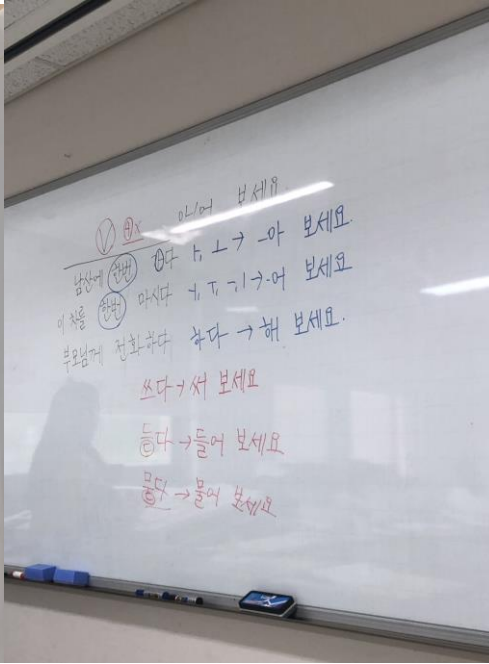 Ⓥ ⊕x 아/어 보세요.
남산에 한번 가다 ㅏ, ㅗ → -아 보세요.
이 차를 한번 마시다 ㅓ, ㅜ, ㅣ → -어 보세요
부모님께 전화하다 하다 → 해 보세요.
쓰다 → 써 보세요
듣다 → 들어 보세요
묻다 → 물어 보세요